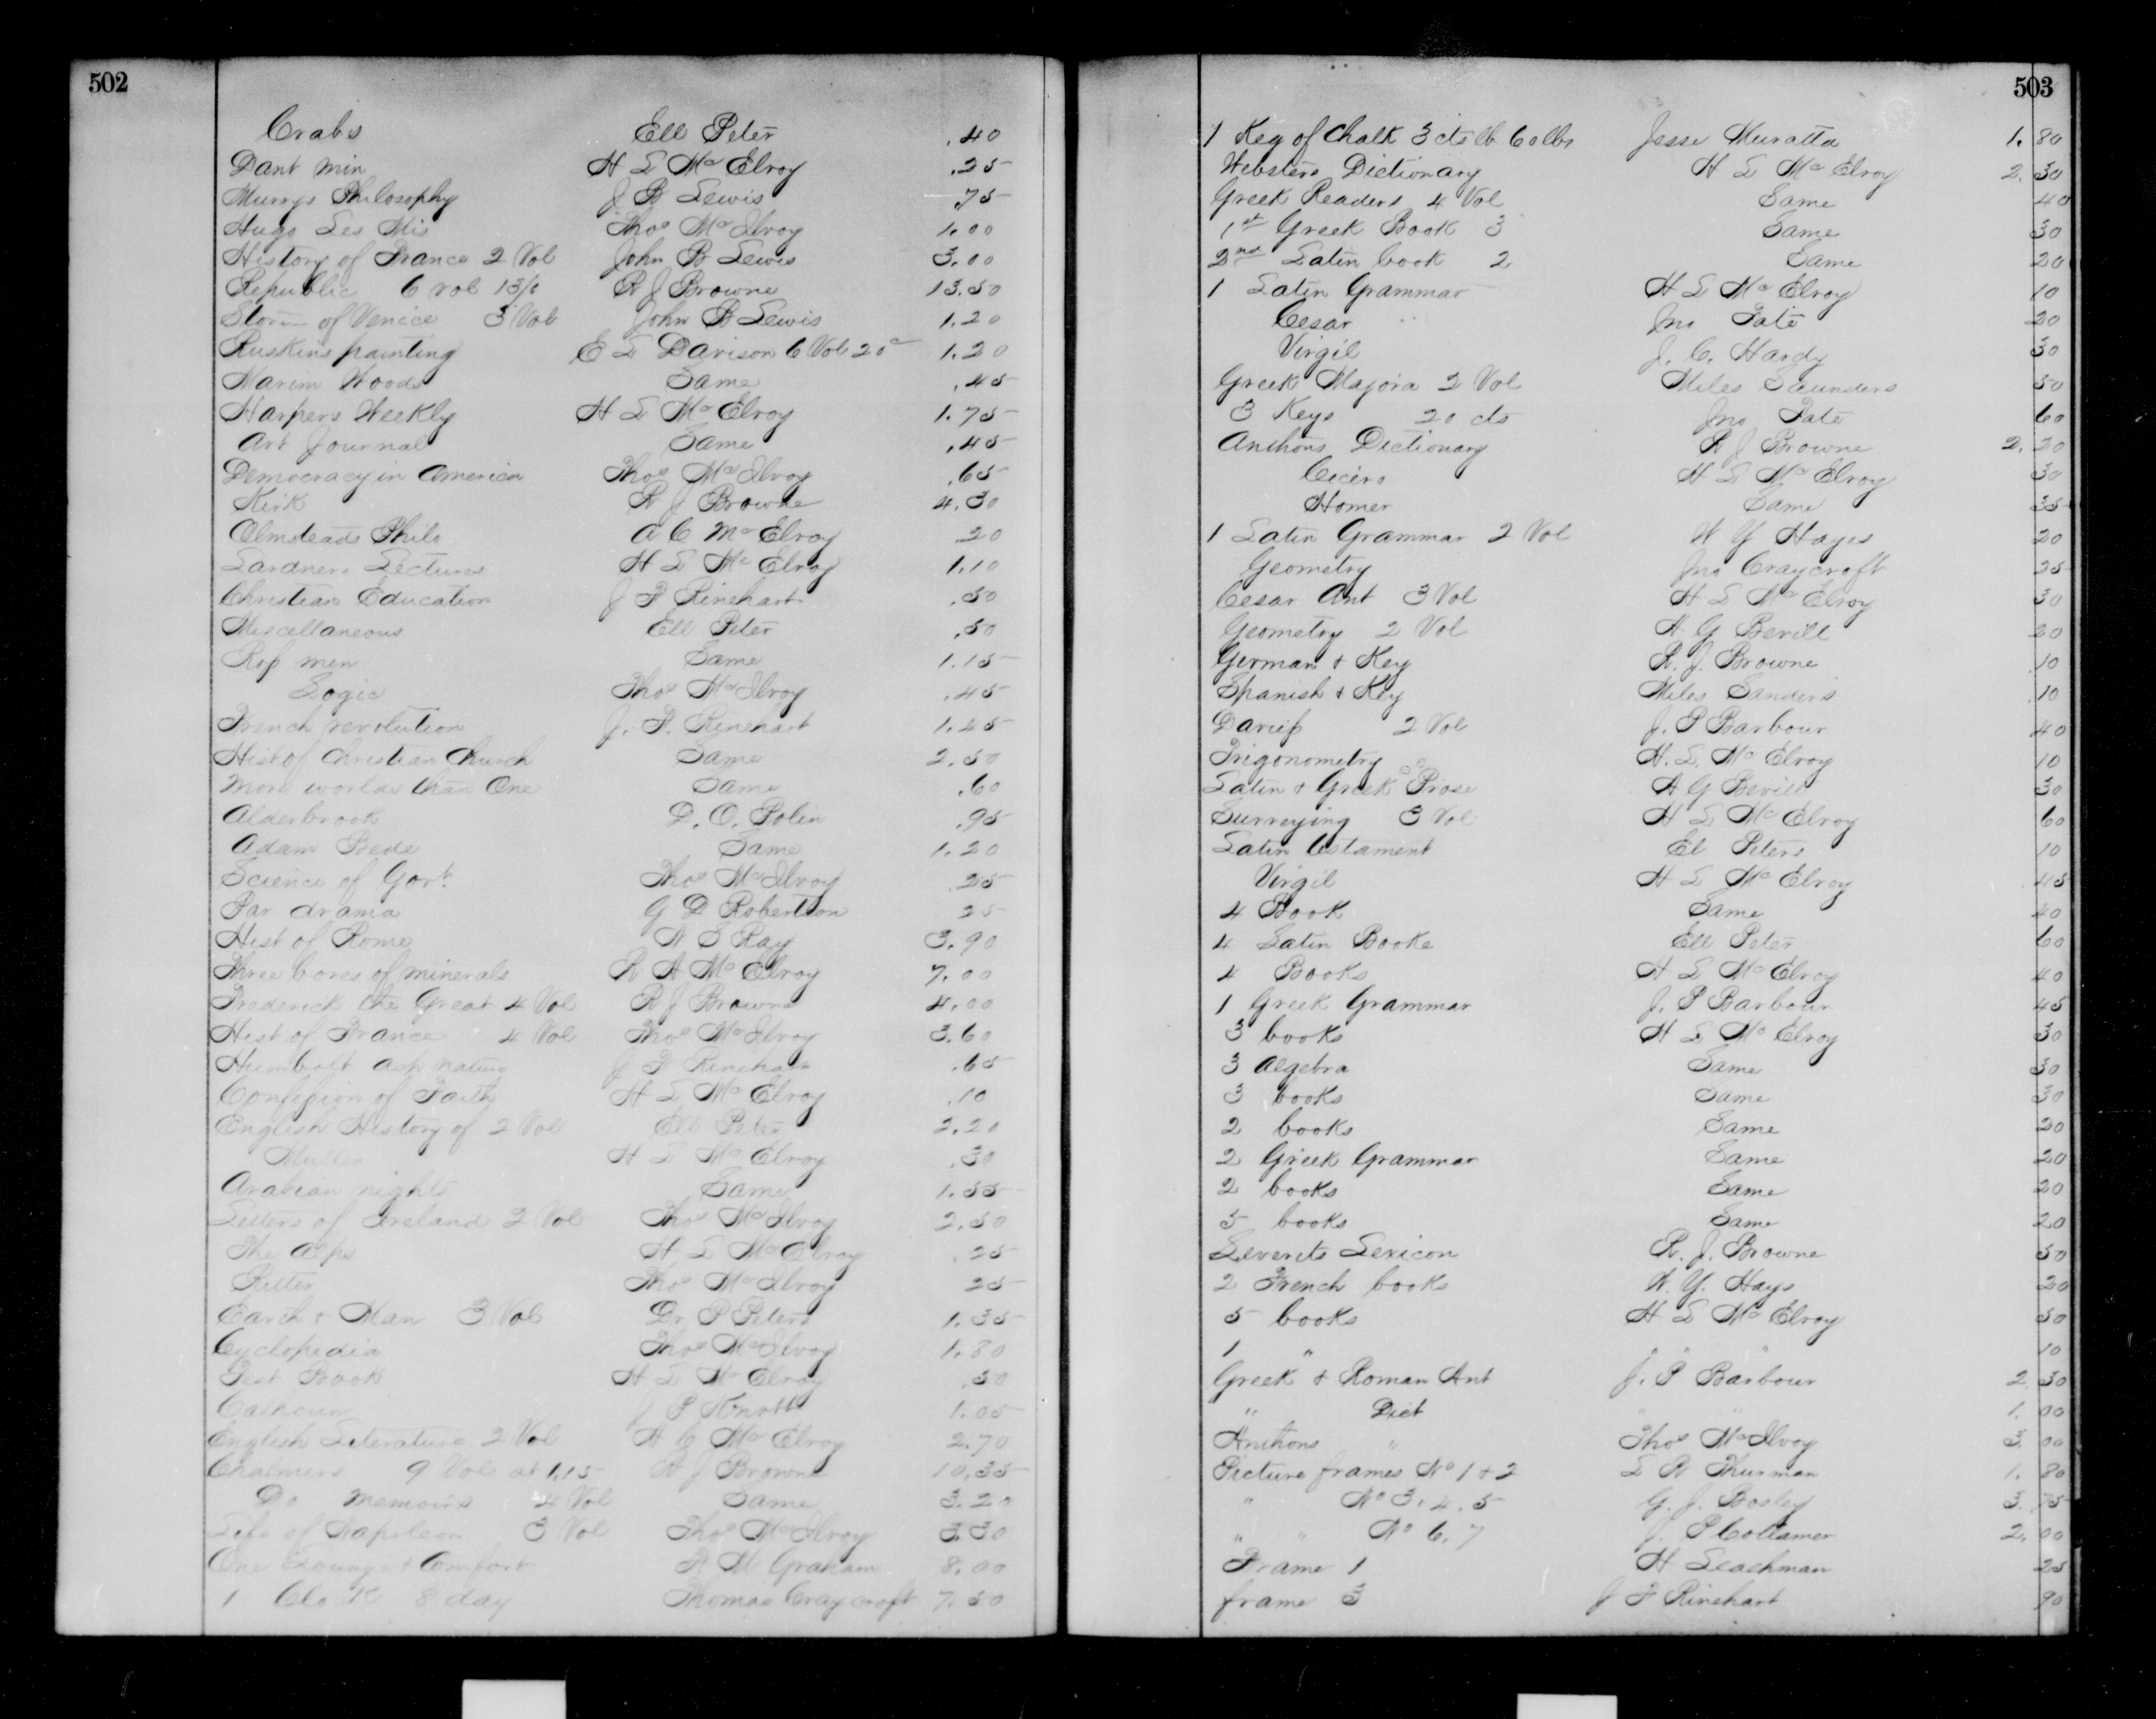 502
Crabs Ell Peter .40
Dant Min H L McElroy .25
Murrys Philosophy J B Lewis .75
Hugo Les Mis Thos McIlvoy 1.00
History of France 2 Vol John B Lewis 3.00
Republic 6 vol R J Browne 13.50
of Venice 3 Vol John B Lewis 1.20
Ruskins painting E L Davison 6 Vol 20c 1.20
Woods Same .45
Harpers Weekly H L McElroy 1.75
Art Journal Same .45
Democracy in America Thos McIlvoy .65
Kirk R J Browne 4.30
Olmsteads Philo A C McElroy 20
Lardners Lectures H L McElroy 1.10
Christian Education J F Rinehart .50
Miscellaneous Ell Peter .50
Rep men Same 1.15
Logic Thos McIlvoy .45
French revolution J. F. Rinehart 1.45
Hist of Christian Church Same 2.50
More worlds than One Same .60
Alderbrook D. O. Polin .95
Adam Bede Same 1.20
Science of Govt. Thos McIlvoy 25
Par drama G D Robertson 25
Hist of Rome S Ray 3.90
Three boxes of minerals R A McElroy 7.00
Frederick the Great 4 Vol R J Browne 4.00
Hist of France 4 Vol Thos McIlvoy 3.60
Humbolt asp nature J F Rinehart .65
Confession of Faith H L McElroy .10
English History of 2 Vol Ell Peter 2.20
Muller H L McElroy .30
Arabian nights Same 1.55
Letters of Ireland 2 Vol Thos McIlvoy 2.50
The Alps H L McElroy .25
Ritter Thos McIlvoy 25
Earth & Man 3 Vol Dr P Peters 1.35
Cyclopedia Thos McIlvoy 1.80
Test Book H L McElroy .50
Calhoun J P Knott 1.05
English Literature 2 Vol H C McElroy 2.70
Chalmers 9 Vol at 1.15 R J Browne 10.35
Do Memoirs 4 Vol Same 3.20
Life of Napoleon 3 Vol Thos McIlvoy 3.30
One Lounge & Comfort R M Graham 8.00
1 Clock 8 day Thomas Craycroft 7.50
503
1 Keg of Chalk 3 cts lb 60 lbs Jesse Muratta 1.80
Websters Dictionary H L McElroy 2.30
Greek Readers 4 Vol Same 40
1st Greek Book 3 Same 30
2nd Latin book 2 Same 20
1 Latin Grammar H L McElroy 10
Cesar Jno Tate 20
Virgil J. C. Hardy 30
Greek Majora 2 Vol Miles Saunders 50
3 Keys 20 cts Jno Tate 60
Anthons Dictionary R J Browne 2.20
Cicero H L McElroy 30
Homer Same 35
1 Latin Grammar 2 Vol W Y Hayes 20
Geometry Jno Craycroft 25
Cesar Ant 3 Vol H L McElroy 30
Geometry 2 Vol A G Bevill 20
German & Key R. J. Browne 10
Spanish & Key Miles Sanders 10
Daviess 2 Vol J. P Barbour 40
Trigonometry H. L. McElroy 10
Latin & Greek Prose A G Bevill 30
Surveying 3 Vol H L McElroy 60
Latin testament El Peters 10
Virgil H L McElroy 45
4 Book Same 40
4 Latin Books Ell Peter 60
4 Books H L McElroy 40
1 Greek Grammar J. P Barbour 45
3 books H L McElroy 30
3 Algebra Same 30
3 books Same 30
2 books Same 20
2 Greek Grammar Same 20
2 books Same 20
5 books Same 20
Leverets Lexicon R. J. Browne 50
2 French books W. Y. Hays 20
5 books H L McElroy 50
1 " " " 10
Greek & Roman Ant J. P Barbour 2 30
" Dict " " 1. 00
Anthons " Thos McIlvoy 3 00
Picture frames No 1 & 2 L R Thurman 1. 80
" No 3. 4. 5 G. J. Bosley 3. 75
" " No 6. 7 J. P Collamer 2. 00
Frame 1 H Leachman 25
frame 3 J F Rinehart 90